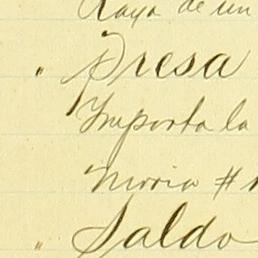 Raya de un
" Presa
Importa la
Noria #
" Saldo